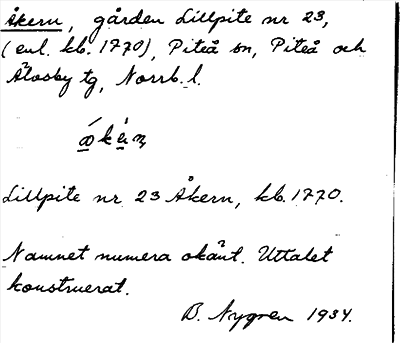 Åkern, gården Lillpite nr 23,
(enl. kb. 1770), Piteå sn, Piteå och
Älvsby tg, Norrb. l.
Lillpite nr 23 Åkern, kb. 1770.
Namnet numera okänt. Uttalet
konstruerat.
B. Nygren 1934.